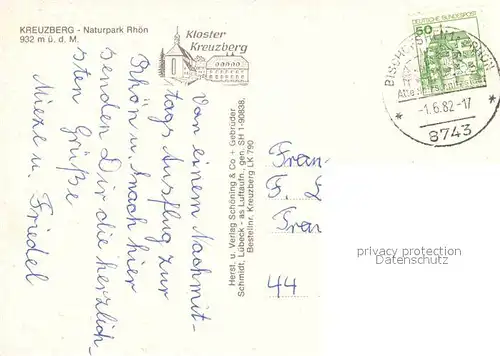 KREUZBERG - Naturpark Rhön
932 m ü. d. M.
Kloster
Kreuzberg
Von einem Nachmit-
tags Ausflug zur
Rhön u. nach hier
senden Dir die herzlich-
sten Grüße
Mieze u. Friedel
Herst. u. Verlag Schöning & Co + Gebrüder
Schmidt, Lübeck - as Luftaufn., gen. SH 1-90838.
Bestellnr. Kreuzberg LK 790
DEUTSCHE BUNDESPOST
50
-1.6.82-17
8743
Fran
Fran
44
privacy protection
Datenschutz